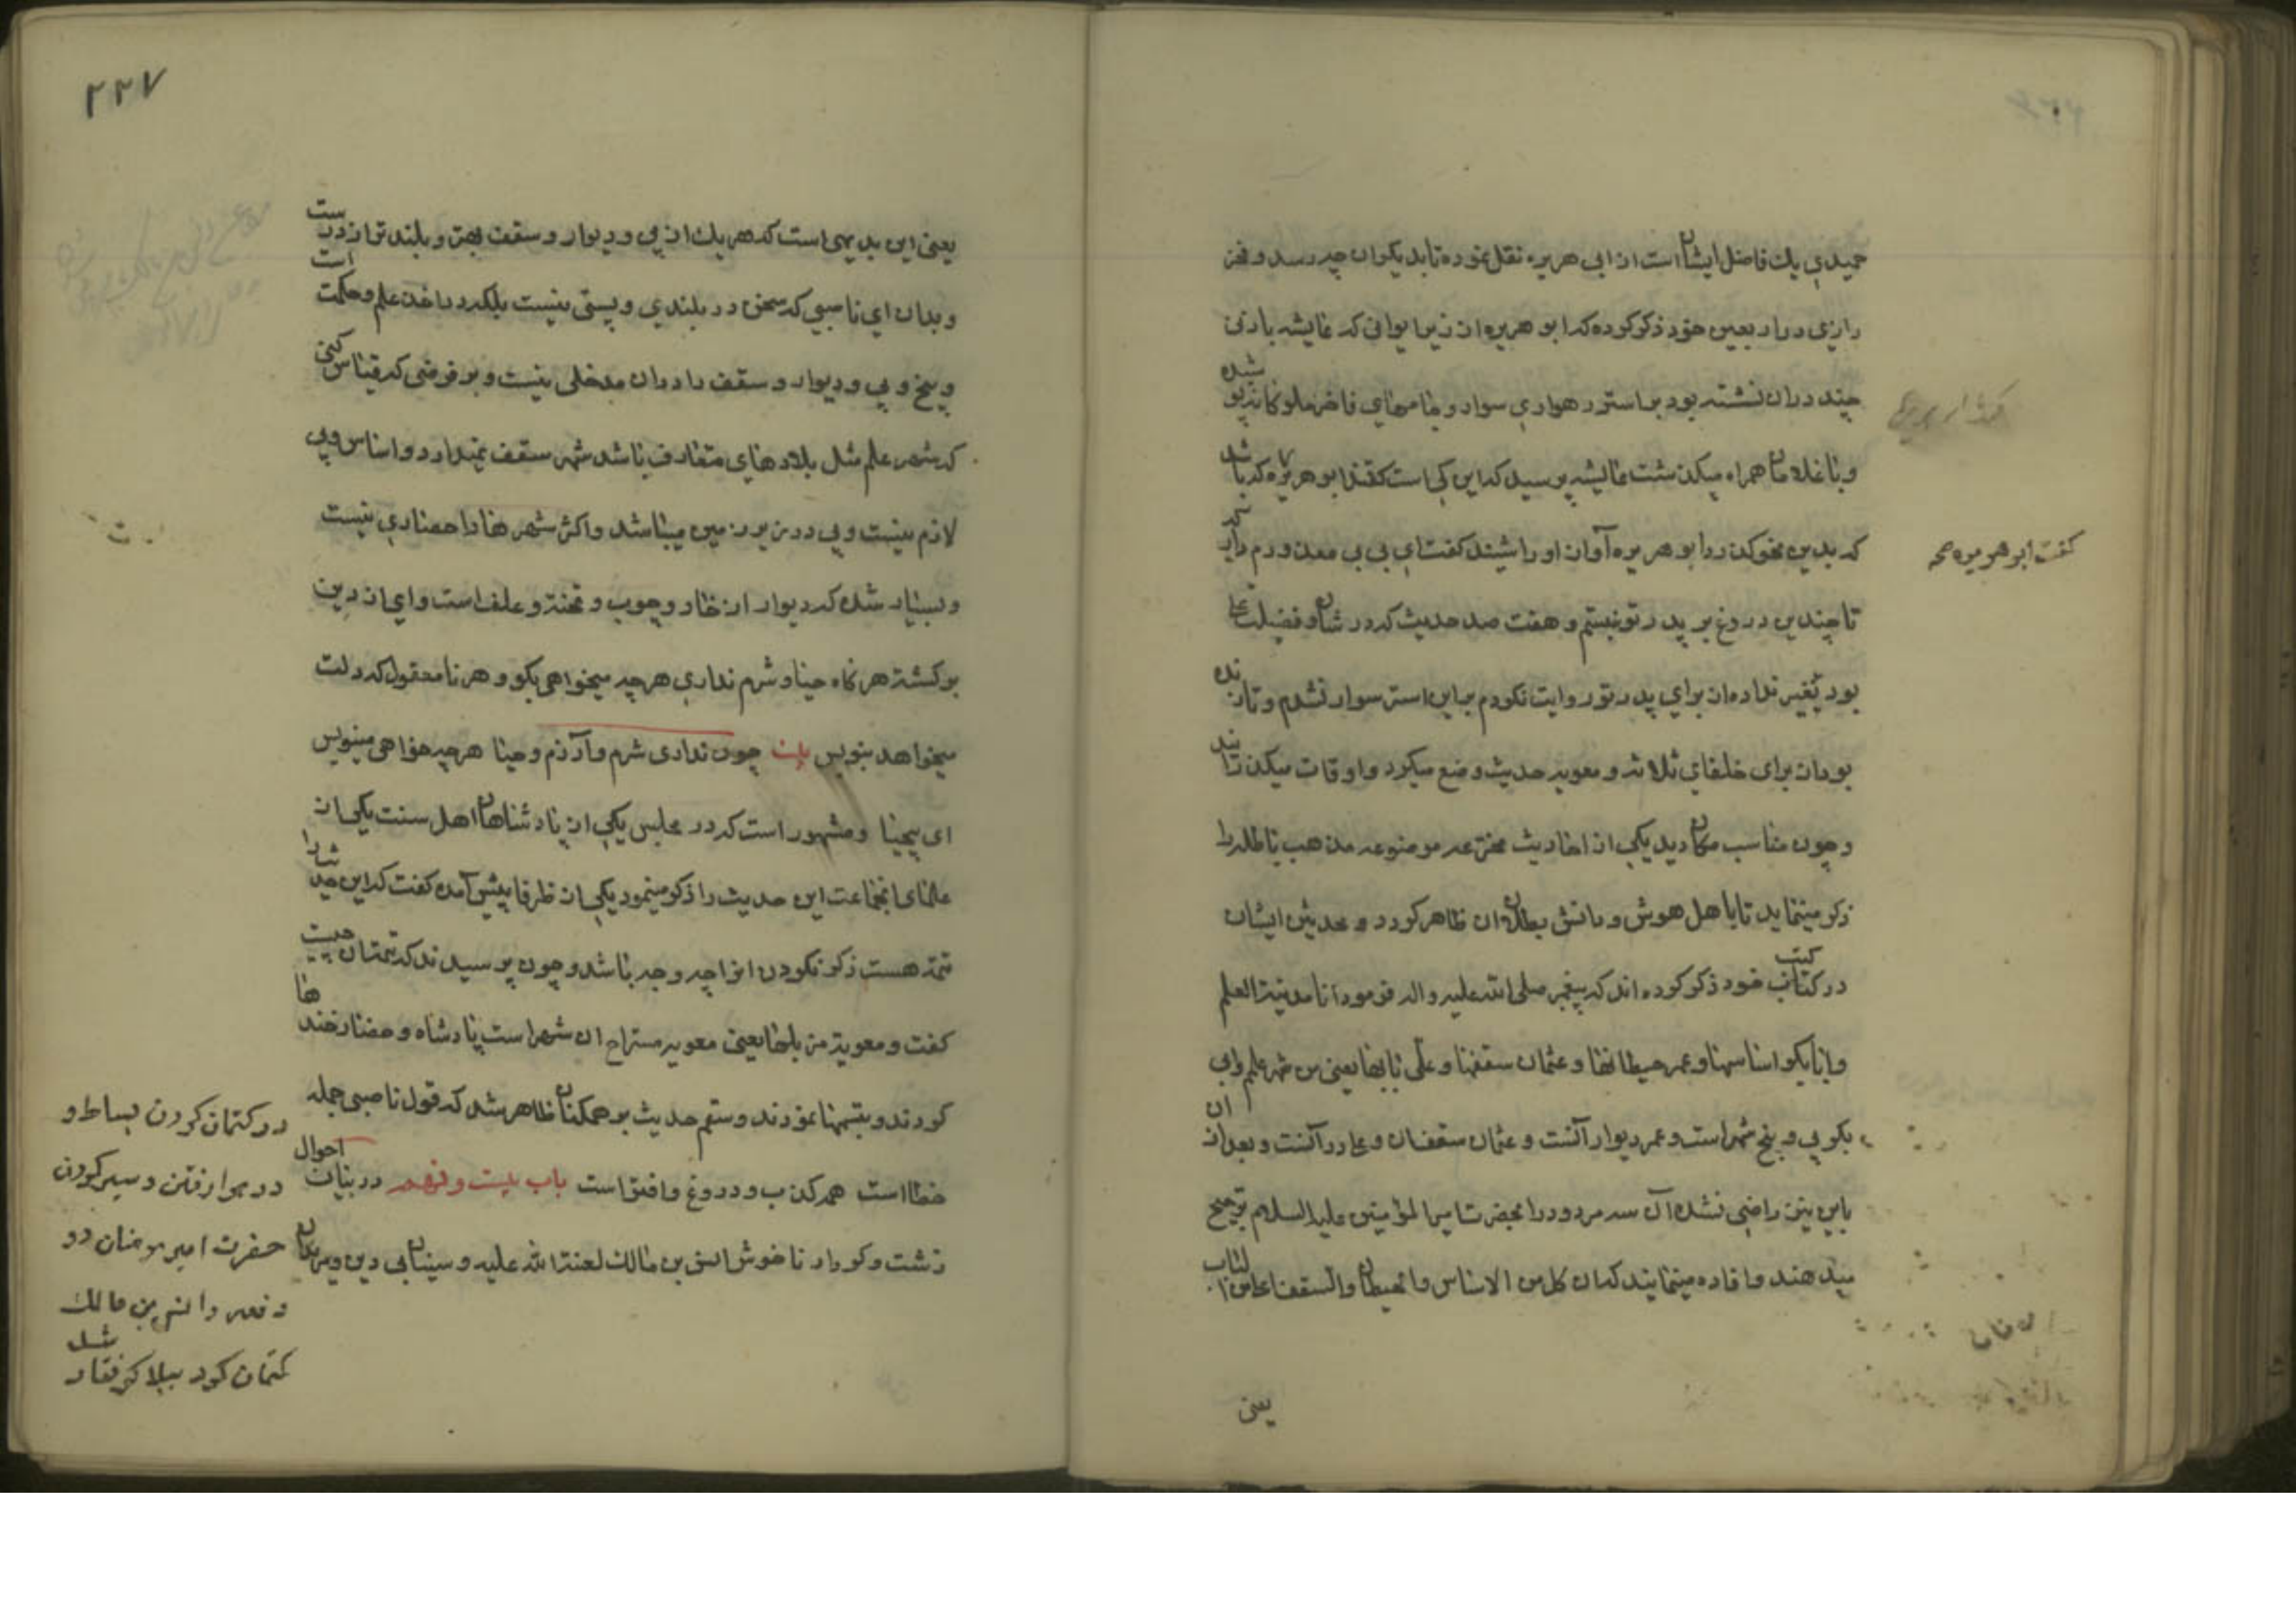 حمیدی یك فاضل ایشان است از ابی هریره نقل نموده تا بدیکران چه رسد و فخر
رازی در اربعین خود ذکر کرده که ابو هریره از زیر ایوانی که عایشه با زنی
چند دران نشسته بود بر استر رهواری سوار و جامهای فاخر ملوکانه پوشیده
و با غلامان همراه میکذشت عایشه پرسید که این کی است کفتند ابو هریره که باشد
که بدین نحو کذرد ابو هریره آواز او را شنید کفت ای بی بی معذورم دار
کفت ابو هریره صح
تا چندین دروغ بر پدر تو نبستم و هفت صد حدیث که در شان و فضیلت علی
بود تغییر نداده از برای پدر تو روایت نکردم بر این استر سوار نشدم و تا زنده
بود از برای خلفای ثلاثه و معویه حدیث وضع میکرد و اوقات میکذرانید
و چون مناسب مکان دید یکی از احادیث مخترعه موضوعه مذهب باطله را
ذکر مینماید تا با اهل هوش و دانش بطلان ان ظاهر کردد و محدثین ایشان
در کتب خود ذکر کرده اند که پیغمبر صلی الله علیه و اله فرمود انا مدینة العلم
و ابابکر اساسها و عمر حیطانها و عثمان سقفها و علی بابها یعنی من شهر علم و ابی
بکر پی و بیخ شهر است و عمر دیوار آنست و عثمان سقف ان و علی در آنست و بعد از ان
باین نیز راضی نشده آن سه مردود را بحضرت امیر المؤمنین علیه السلام ترجیح
میدهند و افاده مینمایند که ان کل من الاساس و الحیطان و السقف اعلی من الباب
یعنی
۲۲۷
یعنی این بدیهی است که هر یك از پی و دیوار و سقف بهتر و بلند تر از در است
و بدان ای ناصبی که سخن در بلندی و پستی نیست بلکه در اخذ علم و حکمت است
و بیخ و پی و دیوار و سقف را دران مدخلی نیست و بر فرضی که قیاس کنی
که شهر علم مثل بلادهای متعارف باشد شهر سقف نمیدارد و اساس و پی
لازم نیست و پی در زیر زمین میباشد و اکثر شهرها را حصاری نیست
و بسیار شده که دیوار از خار و چوب و تخته و علف است و ای از دین
برکشته هر کاه حیا و شرم نداری هر چه میخواهی بکو و هر نامعقول که دلت
میخواهد بنویس بیت چون نداری شرم و آزرم و حیا هر چه خواهی مینویس
ای بیحیا و مشهور است که در مجلس یکی از پادشاهان اهل سنت یکی از
علمای انجماعت این حدیث را ذکر مینمود یکی از ظرفا پیش آمده کفت که این حدیث را
تتمه هست ذکر نکردن انرا چه وجه باشد و چون پرسیدند که تتمه ان چیست
کفت و معویة مزبلها یعنی معویه مستراح ان شهر است پادشاه و حضار خندها
کردند و تبسمها نمودند و سقم حدیث بر همکنان ظاهر شد که قول ناصبی جمله
خطا است همه کذب و دروغ و افترا است باب بیست و نهم در بیان احوال
زشت و کردار ناخوش انس بن مالك لعنة الله علیه و سینات بی دین
در کتمان کردن بساط و
در هوا رفتن و سیر کردن
حضرت امیر مومنان دو
دفعه و انس بن مالك
کتمان کرد ببلا کرفتار شد